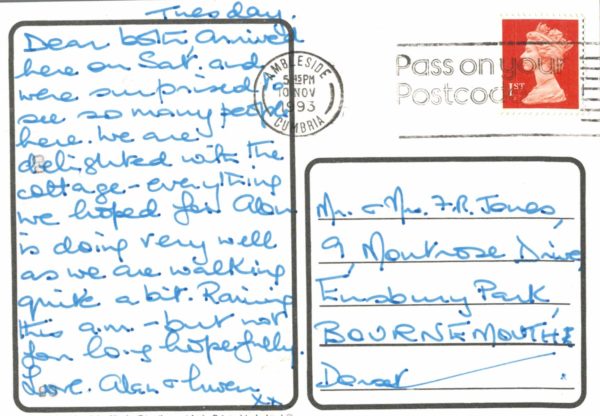 Tuesday.
Dear both, Arrived
here on Sat. and
were surprised to
see so many people
here. We are
delighted with the
cottage - everything
we hoped for. Alan
is doing very well
as we are walking
quite a bit. Raining
this a.m. - but not
for long hopefully.
Love. Alan & Gwen
xx
AMBLESIDE
5.45PM
10 NOV
1993
CUMBRIA
Pass on your
Postcode
1ST
Mr. & Mrs. F.R. Jones,
9, Montrose Drive,
Ensbury Park,
BOURNEMOUTH
Dorset